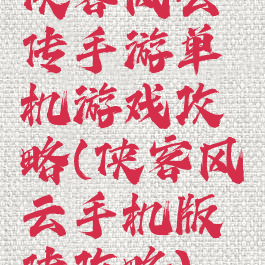 侠客风云
传手游单
机游戏攻
略(侠客风
云手机版
攻略)